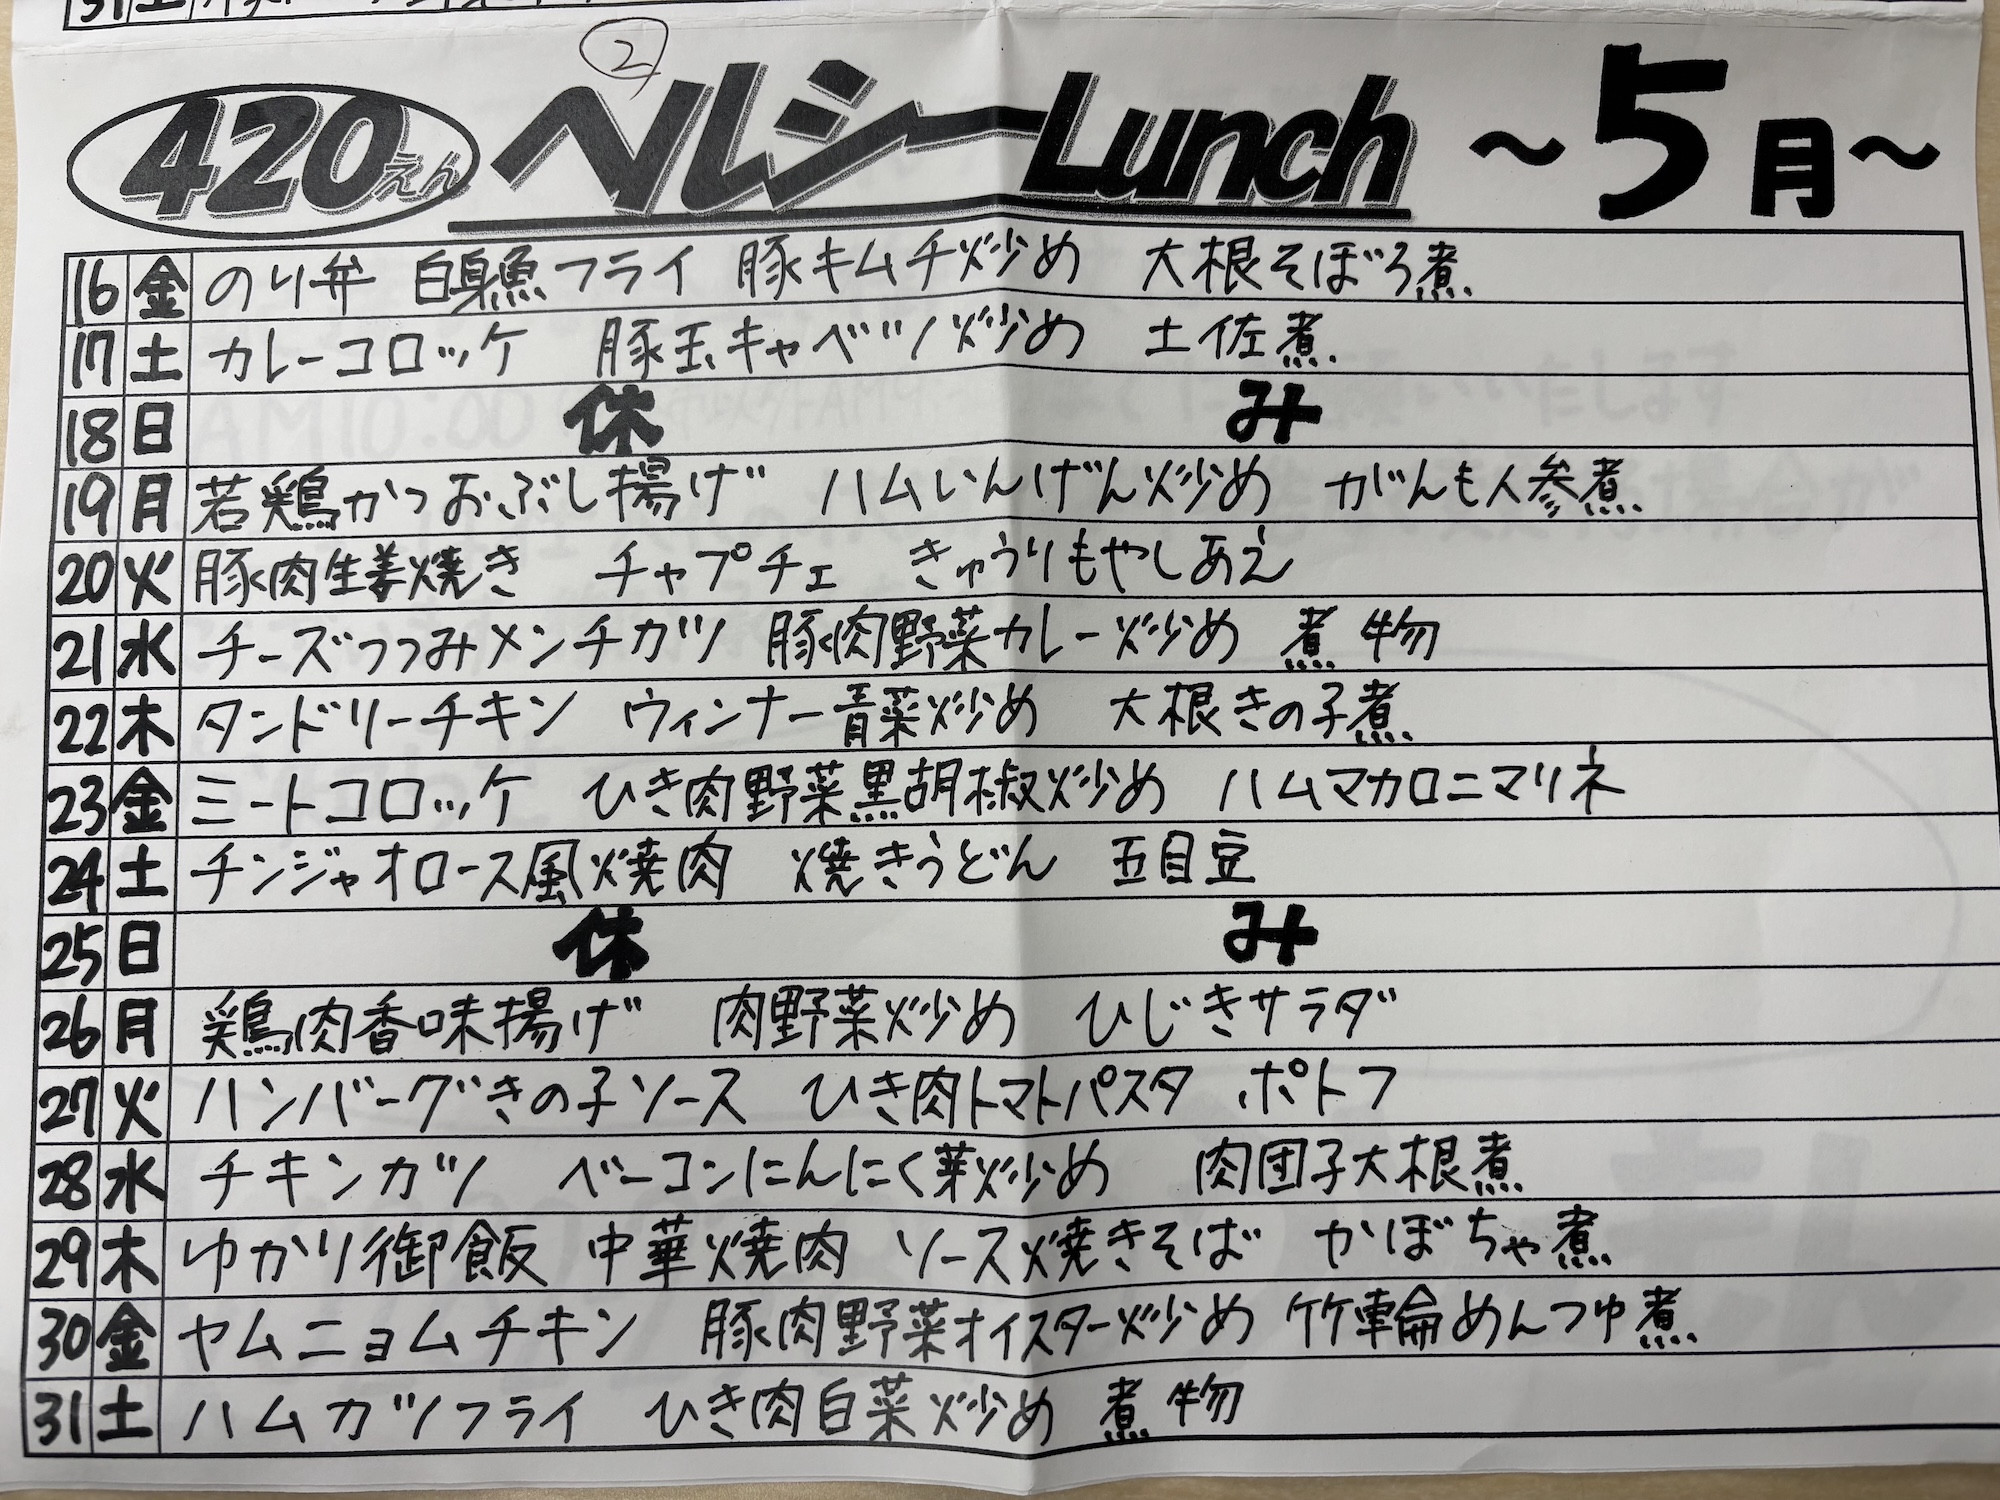 ②
420えん ヘルシーLunch ～5月～
16 金 のり弁 白身魚フライ 豚キムチ炒め 大根そぼろ煮
17 土 カレーコロッケ 豚玉キャベツ炒め 土佐煮
18 日 休み
19 月 若鶏かつおぶし揚げ ハムいんげん炒め がんも人参煮
20 火 豚肉生姜焼き チャプチェ きゅうりもやしあえ
21 水 チーズつつみメンチカツ 豚肉野菜カレー炒め 煮物
22 木 タンドリーチキン ウィンナー青菜炒め 大根きの子煮
23 金 ミートコロッケ ひき肉野菜黒胡椒炒め ハムマカロニマリネ
24 土 チンジャオロース風焼肉 焼きうどん 五目豆
25 日 休み
26 月 鶏肉香味揚げ 肉野菜炒め ひじきサラダ
27 火 ハンバーグきの子ソース ひき肉トマトパスタ ポトフ
28 水 チキンカツ ベーコンにんにく芽炒め 肉団子大根煮
29 木 ゆかり御飯 中華焼肉 ソース焼きそば かぼちゃ煮
30 金 ヤムニョムチキン 豚肉野菜オイスター炒め 竹輪めんつゆ煮
31 土 ハムカツフライ ひき肉白菜炒め 煮物